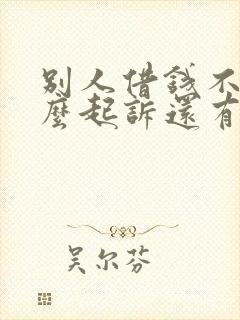 别人借錢不
麼起訴還有
吴尔芬